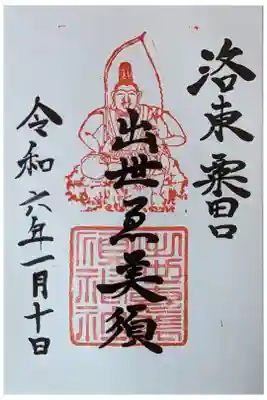 洛東粟田口
出世ゑ美須
令和六年一月十日